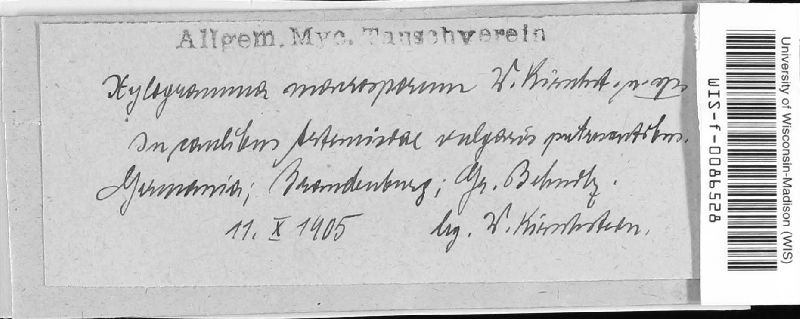 Allgem. Myc. Tauschverein
Xylogramma macrosporum W. Kirschst. n. sp.
In caulibus Artemisiae vulgaris putrescentibus.
Germania; Brandenburg; Gr. Behnitz.
11. X 1905 leg. W. Kirschstein.
University of Wisconsin-Madison (WIS)
WIS-f-0086528